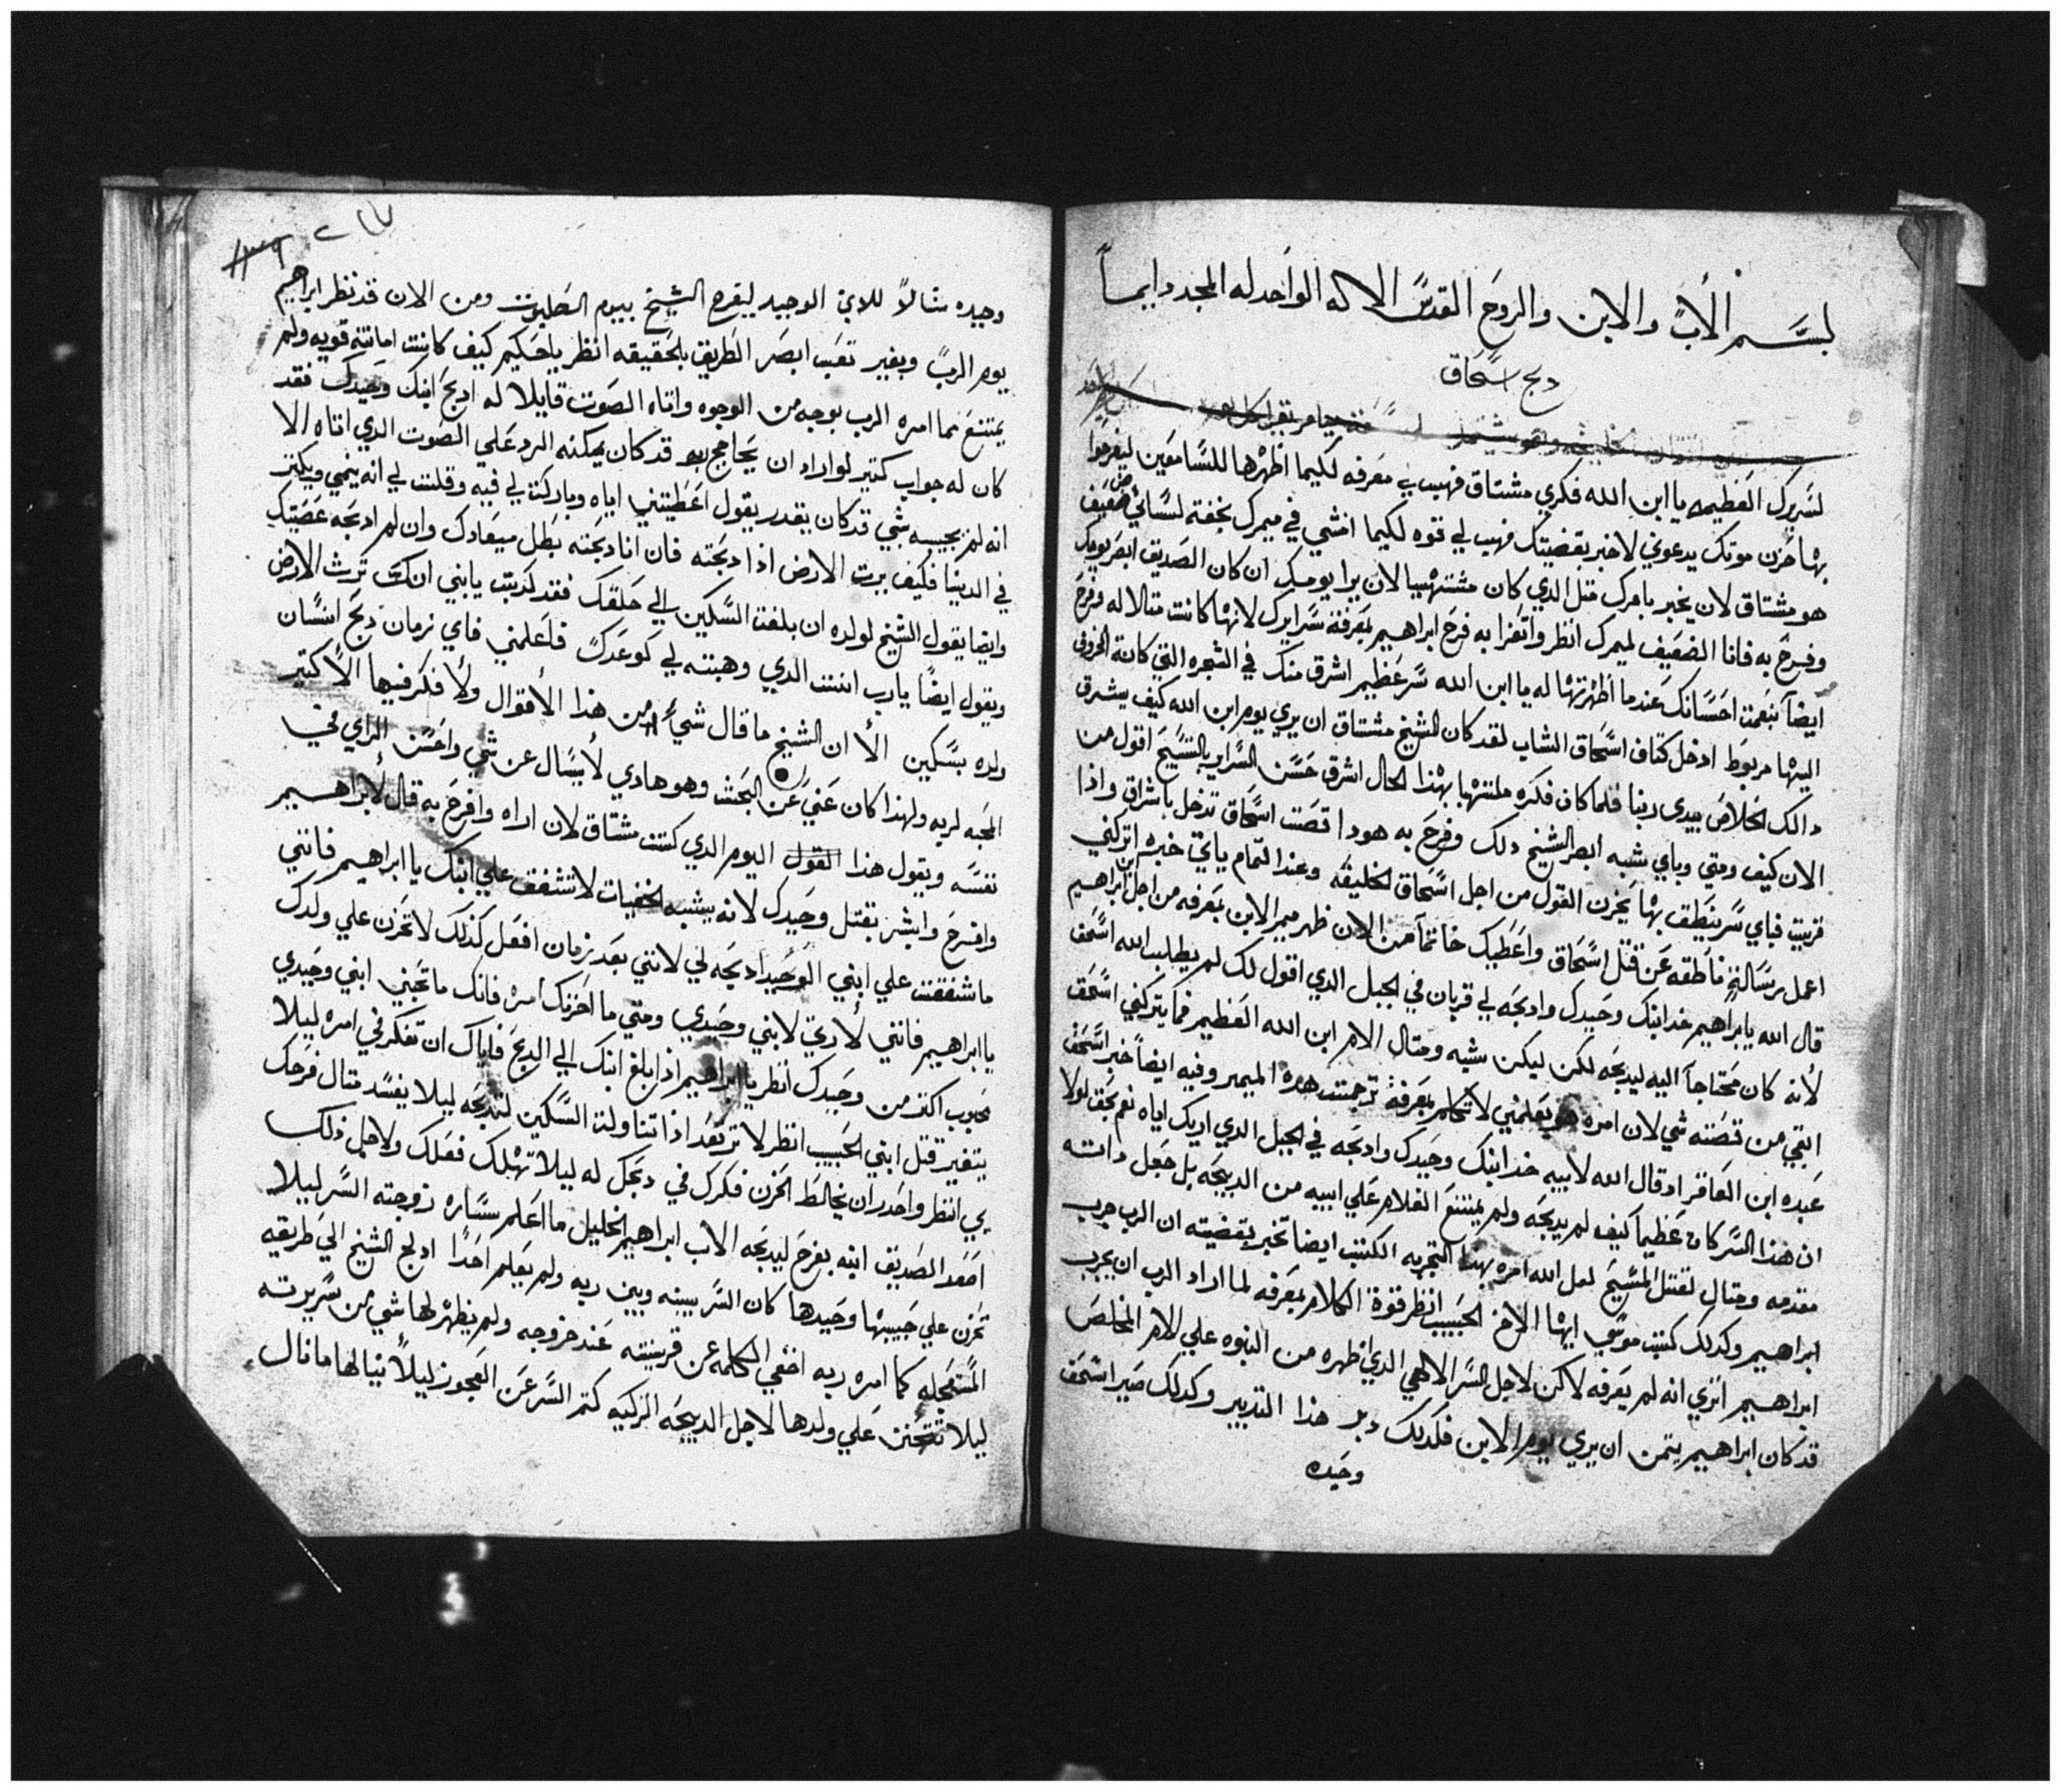 لبسـم الأب والابن والروح القدس الاله الواحد له المجد دايماً
دبح اسحاق
لسرك العظيم يا ابن الله فكري مشتاق فهب لي معرفه لكيما اظهرها للسامعين ليفرحوا
بها حزن موتك يدعوني لاخبر بقضيتك فهب لي قوه لكيما امشي في ميمرك بخفة لساني ضعيف
هو مشتاق لان يخبر بامرك متل الدي كان مشتهيا لان يرا يومك ان كان الصديق ابصر يومك
وفرح به فانا الضعيف لميمرك انظر واتعزا به فرح ابراهيم بمعرفة سرايرك لانها كانت متالا له وفرح
ايضا بنعمت احسانك عندما اظهرتها له يا ابن الله سر عظيم اشرق منك في الشجره التي كان الخروف
اليها مربوط ادخل كتاف اسحاق الشاب لقد كان الشيخ مشتاق ان يري يوم ابن الله كيف يشرق
دالك الخلاص بيدي ربنا فلما كان فكره ملتهبا بهدا الحال اشرق حسن السراير بالشيخ اقول من
الان كيف ومتي وباي شبه ابصر الشيخ دلك وفرح به هودا قصت اسحاق تدخل باشراق واذا
قريت فباي سر ينطق بها يحزن القول من اجل اسحاق لخليقه وعند التمام ياتي خبره اتركني
اعمل برسالة ناطقه عن قتل اسحاق واعطيك خاتما من الان ظهر ميمر الابن بمعرفه من اجل ابن ابراهيم
قال الله يا ابراهيم خد ابنك وحيدك وادبحه لي قربان في الجبل الدي اقول لك لم يطلب الله اسحق
لأنه كان محتاجا اليه ليدبحه لكن ليكن شبه ومتال الام ابن الله العظيم فما يتركني اسحق
التجي من قصته شي لان امره هو يعلمني لاتكلم بمعرفة ترجمت هده الميمر وفيه ايضا خبر اسحق
عبده ابن العاقر اد قال الله لابيه خد ابنك وحيدك وادبحه في الجبل الدي اريك اياه نعم بحق لولا
ان هدا السر كان عظيما كيف لم يدبحه ولم يمتنع الغلام علي ابيه من الدبيحه بل جعل داته
مقدمه ومتال لقتل المسيح لعل الله امره بهدا التجربه الكتب ايضا تخبر بقضيته ان الرب جرب
ابراهيم وكدلك كتب موسي ايها الاخ الحبيب انظر قوة الكلام بمعرفه لما اراد الرب ان يجرب
ابراهيم اتري انه لم يعرفه لاكن لاجل السر الالاهي الدي اظهره من النبوه علي الام المخلص
قد كان ابراهيم يتمن ان يري يوم الابن فكدلك دبر هذا التدبير وكدلك صير اسحق
وحيده
٢٦٧
١٣٩
وحيده متالاً للابن الوحيد ليفرح الشيخ بيوم الصلبوت ومن الان قد نظر ابراهيم
يوم الرب وبغير تعب ابصر الطريق بالحقيقه انظر يا حكيم كيف كانت امانته قويه ولم
يمتنع مما امره الرب بوجه من الوجوه واتاه الصوت قايلا له ادبح ابنك وحيدك فقد
كان له جواب كتير لو اراد ان يحاجج به قد كان يمكنه الرد علي الصوت الدي اتاه الا
انه لم يجيبه شي قد كان يقدر يقول اعطيتني اياه وباركت لي فيه وقلت لي انه ينمي ويكتر
في الدينا فكيف يرت الارض اذا دبحته فان انا دبحته بطل ميعادك وان لم ادبحه عصيتك
وايضا يقول الشيخ لولده ان بلغت السكين الي حلقك فقد كدبت يا ابني انك ترث الارض
ويقول ايضا يا رب انت الدي وهبته لي كوعدك فاعلمني فاي زمان دبح انسان
ولده بسكين الأ ان الشيخ ما قال شيء من هدا الأقوال ولأ فكر فيها الأ كتير
المحبه لربه ولهدا كان غني عن البحت وهو هادي لأ يسال عن شي واحسن الراي في
نفسه ويقول هدا القول اليوم الدي كنت مشتاق لان اراه وافرح به قال لأبراهيم
وافرح وابشر بقتل وحيدك لانه يشبه الخفيات لا تشفق علي ابنك يا ابراهيم فانني
ما شفقت علي ابني الوحيد ادبحه لي لانني بعد زمان افعل كذلك لا تحزن علي ولدك
يا ابراهيم فانني لأ رتي لابني وحيدي ومتي ما احزنك امره فانك ما تحبني ابني وحيدي
محبوب اكتر من وحيدك انظر يا ابراهيم اذا بلغ ابنك الي الدبح فاياك ان تفكر في امره ليلا
يتغير قتل ابني الحبيب انظر لا ترتعد اذا تناولت السكين لتدبحه ليلا يفسد متال فرحك
بي انظر واحدر ان يخالط الحزن فكرك في دبحك له ليلا تهلك فعلك ولاجل ذلك
اصعد الصديق ابنه بفرح ليدبحه الاب ابراهيم الخليل ما اعلم ساره زوجته السر ليلا
تحزن علي حبيبها وحيدها كان السر بينه وبين ربه ولم يعلم احدا ادلج الشيخ الي طريقه
المستعجله كما امره ربه اخفي الكلمه عن قرينته عند خروجه ولم يظهر لها شي من سريرته
ليلا تتحنن علي ولدها لاجل الدبيحه الزكيه كتم السر عن العجوز ليلاً ينالها ما نال